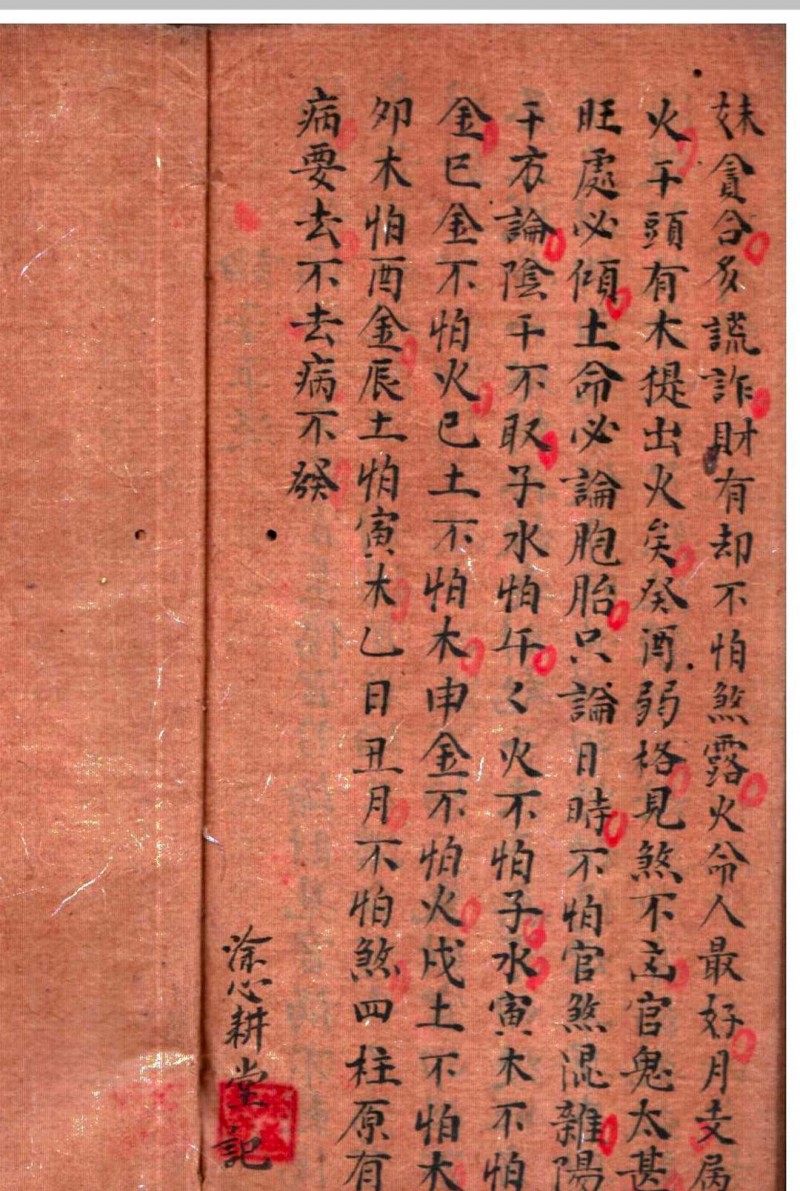 妹貪合多謊詐財有却不怕煞露火命人最好月支病
火干頭有木提出火矣癸酒弱格見煞不忌官鬼太甚
旺處必傾土命必論胞胎只論日時不怕官煞混雜陽
干方論陰干不取子水怕午々火不怕子水寅木不怕
金巳金不怕火巳土不怕木申金不怕火戌土不怕木
卯木怕酉金辰土怕寅木乙日丑月不怕煞四柱原有
病要去不去病不發
涂心耕堂記